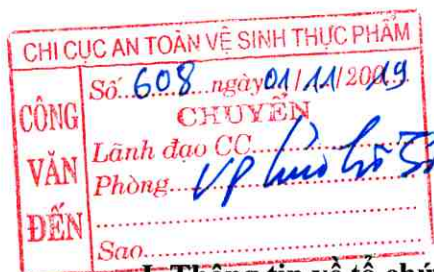 CHI CỤC AN TOÀN VỆ SINH THỰC PHẨM
CÔNG VĂN ĐẾN
Số 608 ngày 01/11/2019
CHUYỂN
Lãnh đạo CC
Phòng VP lưu hồ
Sao
I. Thông tin về tổ ch